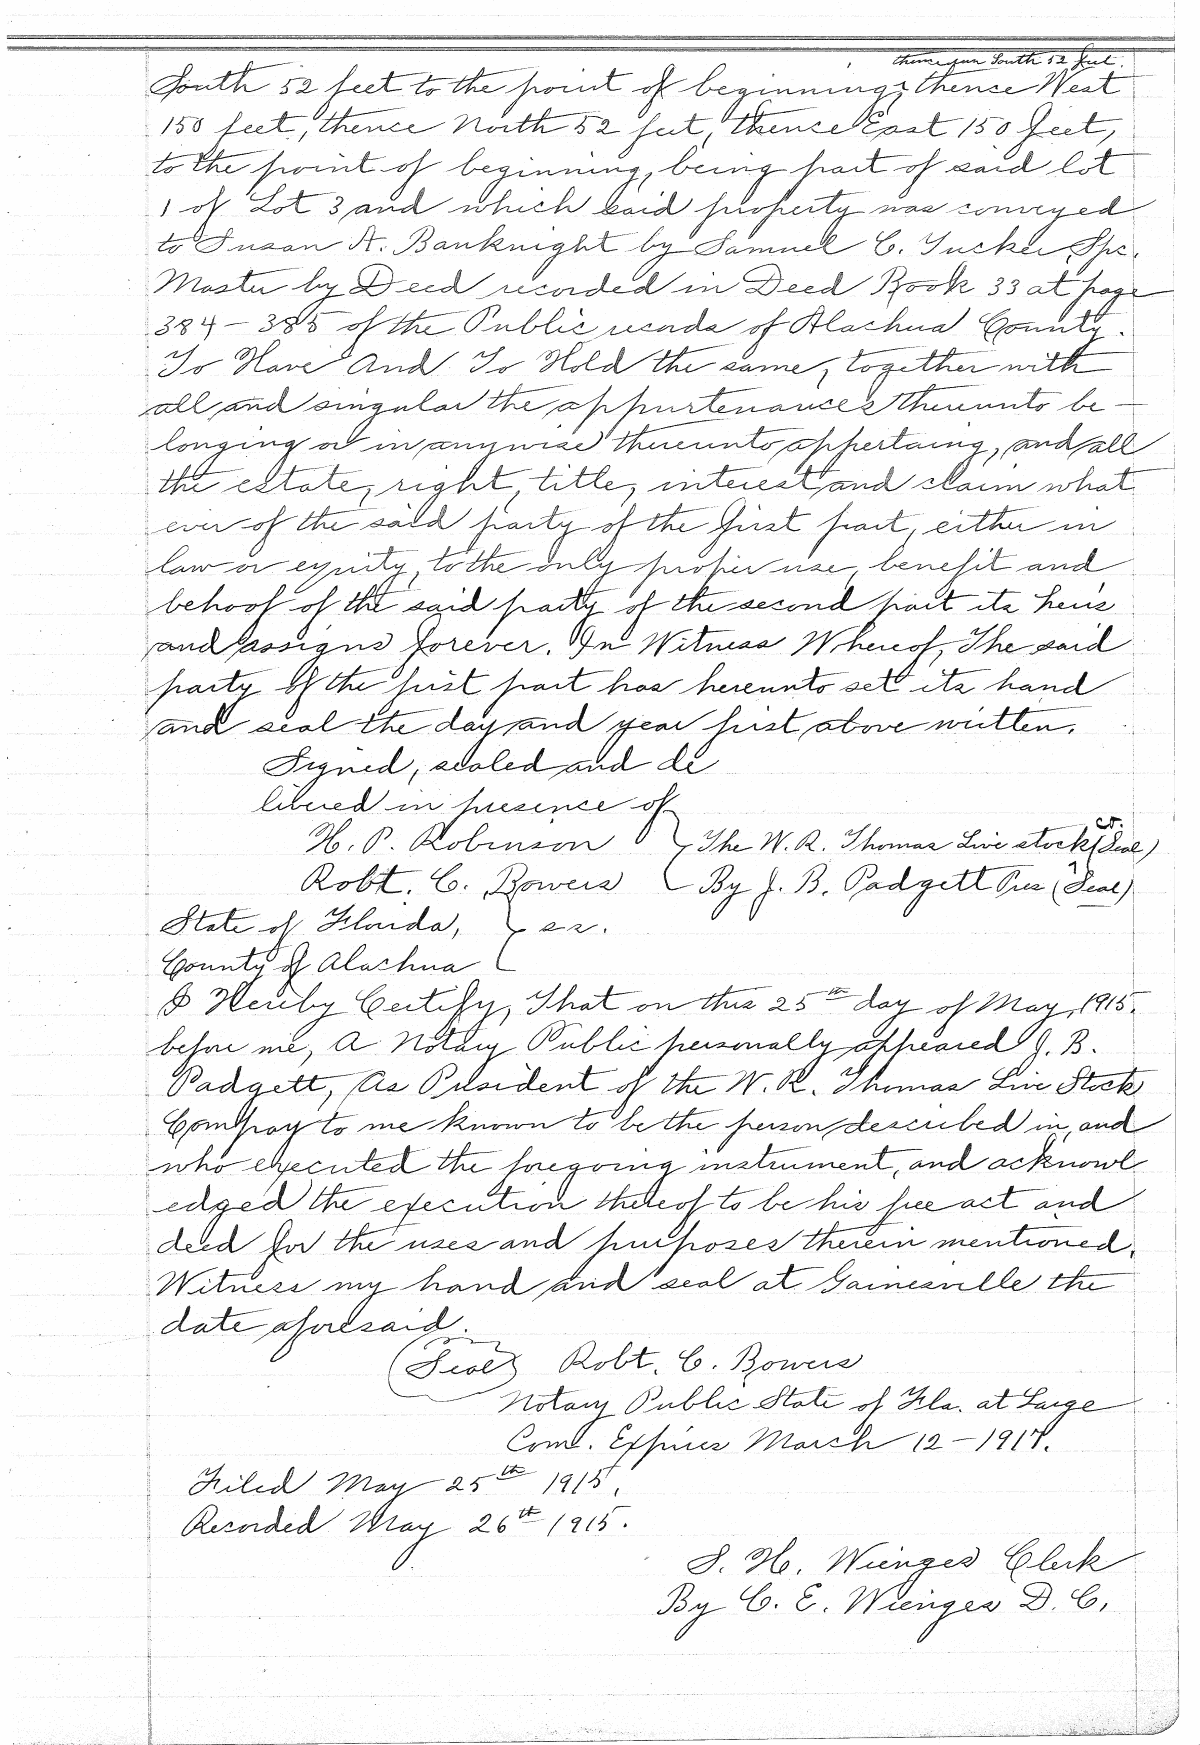 thence run South 52 feet.
South 52 feet to the point of beginning; thence West
150 feet, thence North 52 feet, thence East 150 feet,
to the point of beginning, being part of said lot
1 of Lot 3 and which said property was conveyed
to Susan A. Banknight by Samuel C. Tucker Spc.
Master by Deed recorded in Deed Book 33 at page
384-385 of the Public records of Alachua County.
To Have And To Hold the same, together with
all and singular the appurtenances thereunto be-
longing or in anywise thereunto appertaing, and all
the estate, right, title, interest and claim what
ever of the said party of the first part, either in
law or equity, to the only proper use, benefit and
behoof of the said party of the second part its heirs
and assigns forever. In Witness Whereof, The said
party of the first part has hereunto set its hand
and seal the day and year first above written.
Signed, sealed and de
livered in presence of
H. P. Robinson } The W. R. Thomas Live stock Co. (Seal)
Robt. C. Bowers By J. B. Padgett Pres (Seal)
State of Florida, } s.s.
County of Alachua
I Hereby Certify, That on this 25th day of May, 1915.
before me, A Notary Public personally appeared J. B.
Padgett, As President of the W. R. Thomas Live Stock
Compay to me known to be the person described in, and
who executed the foregoing instrument, and acknowl
edged the execution thereof to be his free act and
deed for the uses and purposes therein mentioned.
Witness my hand and seal at Gainesville the
date aforesaid.
(Seal) Robt. C. Bowers
Notary Public State of Fla. at Large
Com. Expires March 12-1917.
Filed May 25th 1915.
Recorded May 26th 1915.
S. H. Wienges Clerk
By C. E. Wienges D. C.